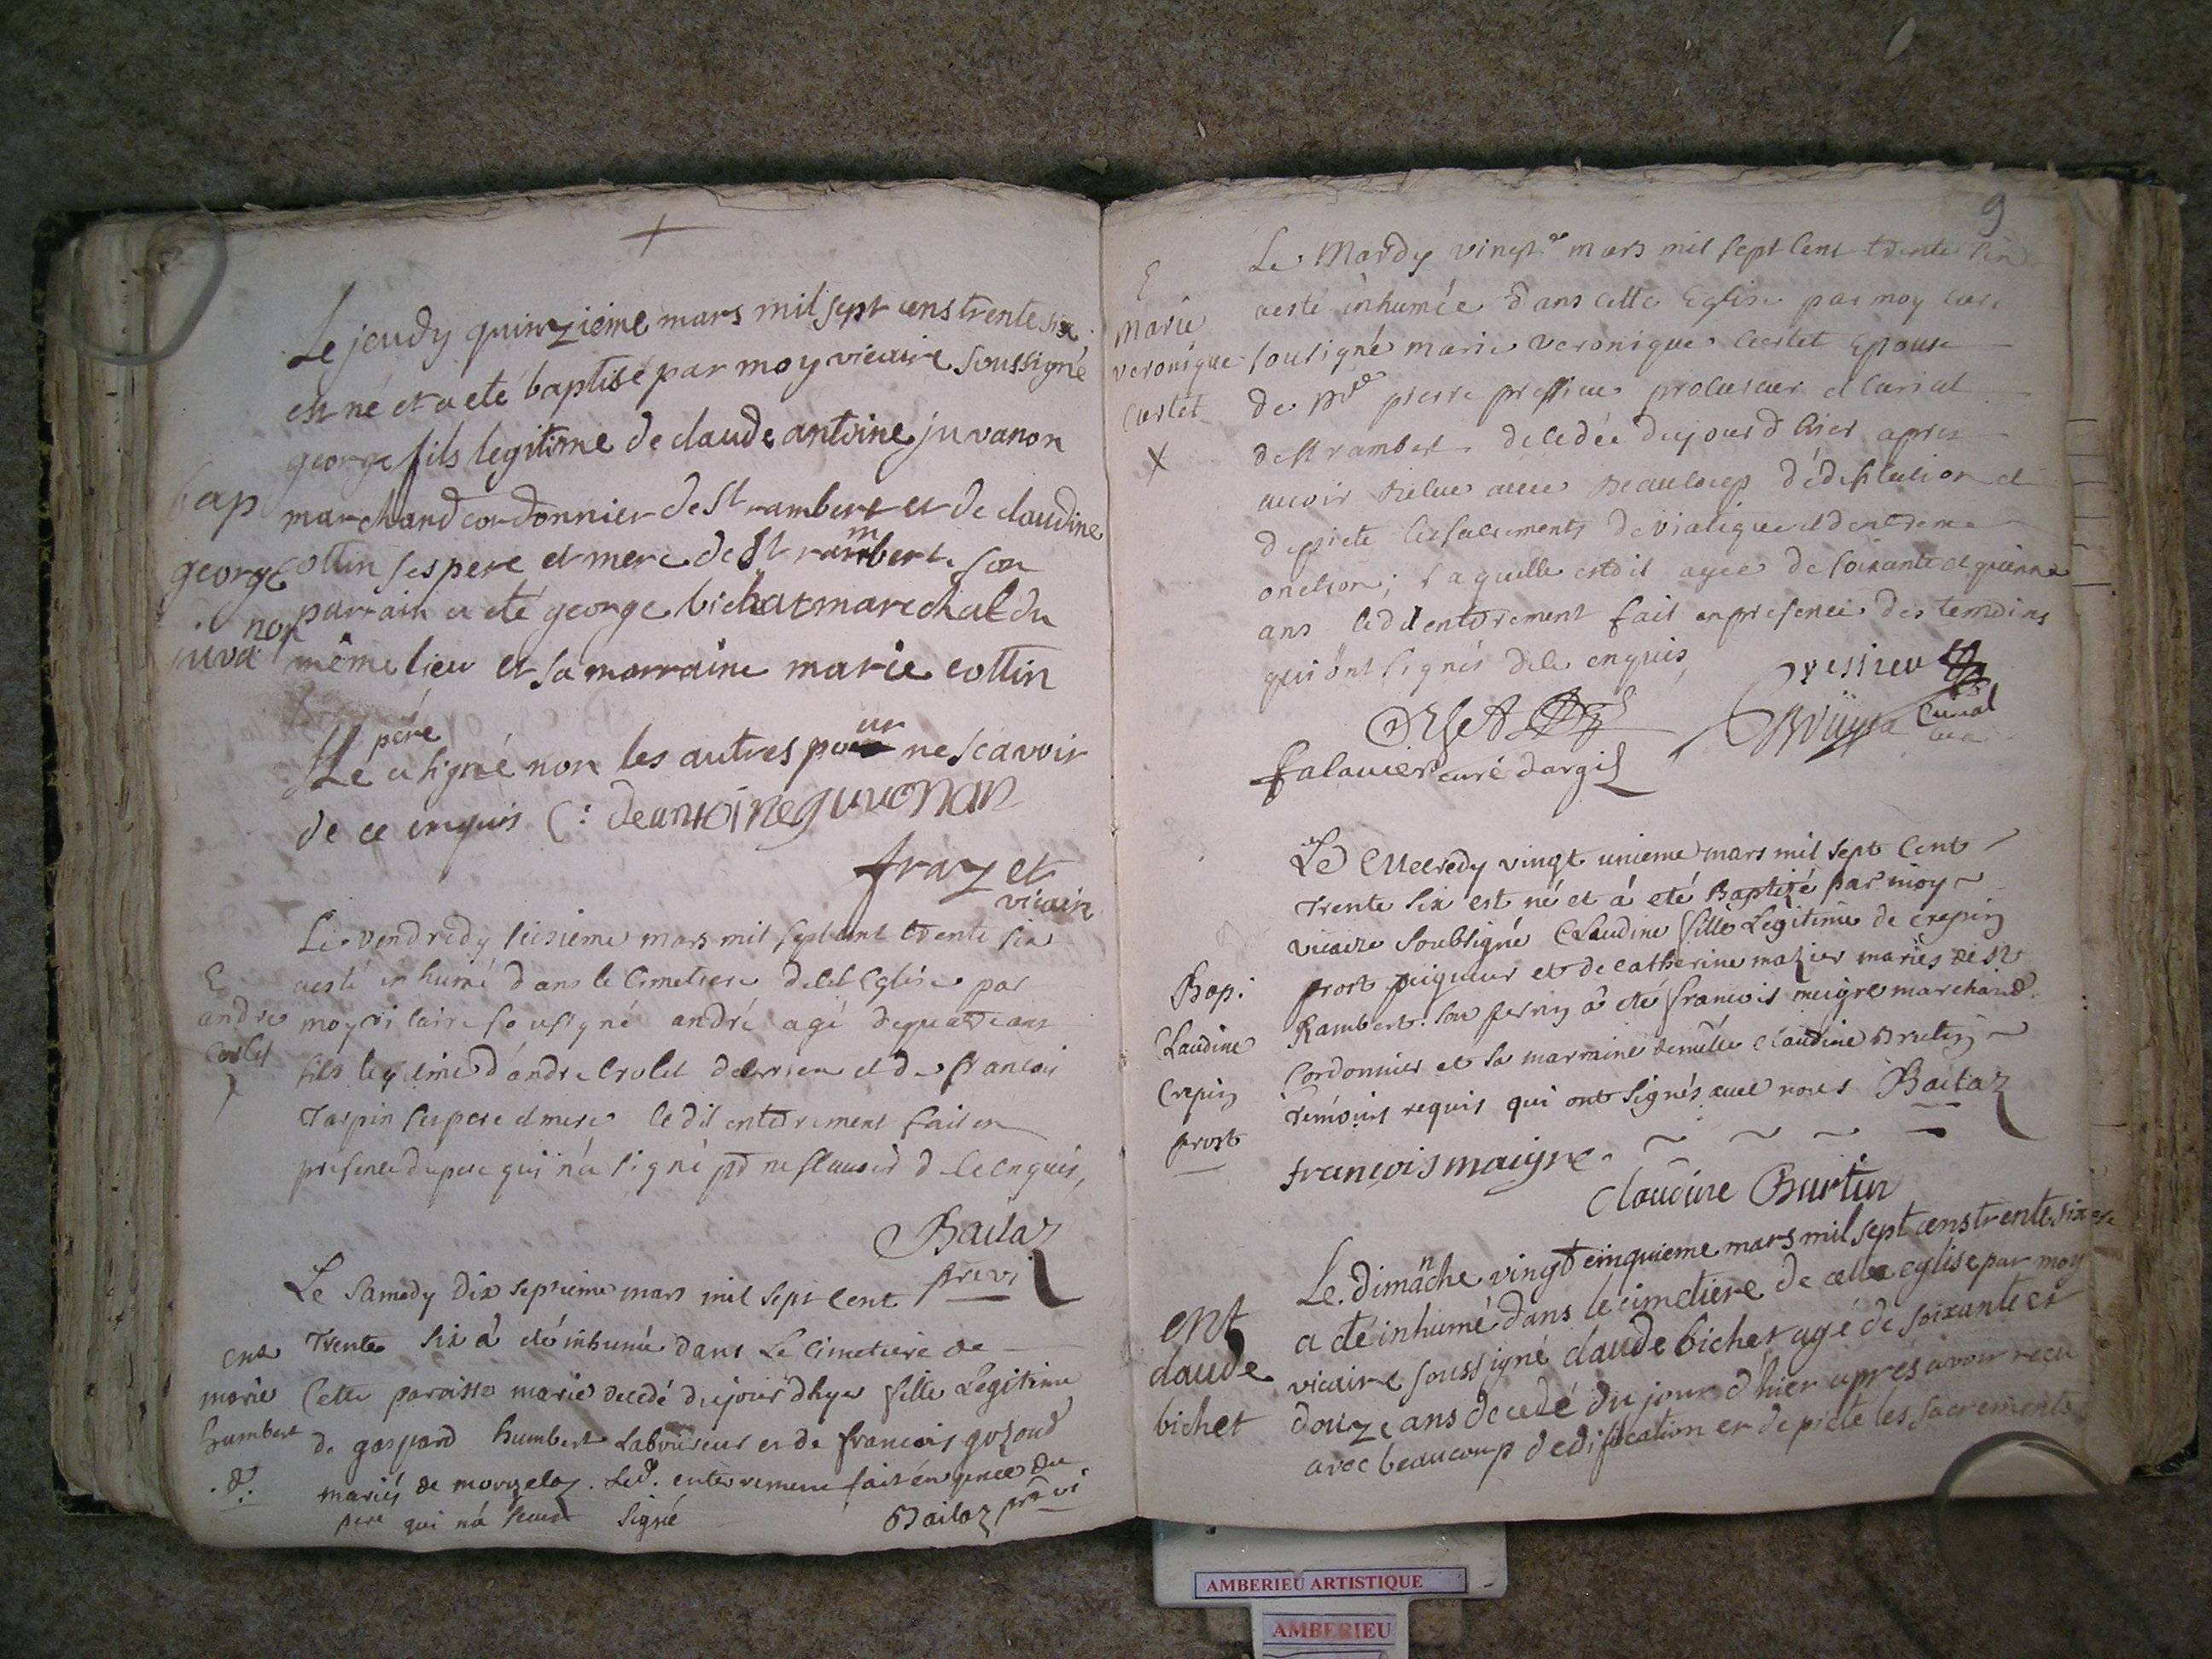 Le jeudy quinzieme mars mil sept cens trente six
est né et a eté baptisé par moy vicaire soussigné
george fils legitime de claude antoine juvanon
bap
marchand cordonnier de St rambert et de claudine
george
cottin ses pere et mere de St rambert. son
parrain a eté george bichat marechal du
juvanon
même lieu et sa marraine marie cottin
Le père a signé non les autres pour ne scavoir
de ce enquis C: deantoine guvonan
frazet
vicaire
Le vendredy seizieme mars mil sept cent trente six
E
aesté inhumé dans le Cimetiere de cet Eglise par
andre
moy vicaire sousigné andré agé de quatre ans
fils legitime d'andre Crolet de et de francoise
Tarpin ses pere et mere le dit enterement fait en
presence du pere qui n'a signé pr ne scavoir de ce enquis,
Bailaz
pre vi
Le Samedy Dix septieme mars mil sept Cent
ent Trente Six à eté inhumée dans Le Cimetiere de
marie Cette paroisse marie decedé du jour d'hyer fille Legitime
humbert de gaspard humbert Laboureur et de francois gozoud
.d. mariés de morgelaz. Led. enterrement fait en pnce du
pere qui n'a sceu Signé Bailaz pre vi
9
Le Mardy vingt mars mil sept Cent trente six
E
aesté inhumée dans cette Eglise par moy curé
marie
veronique
sousigné marie veronique Curtet Epouse
Curtet
de Me pierre pressieu procureur et curial
X
de St rambert decedée du jour d hier apres
avoir Recue avec Beaucoup d'édification et
de pieté les sacrements de viatique et dextreme
onction; laquelle estoit agée de soixante et quinze
ans ledit enterement fait en presence des temoins
qui ont signés de ce enquis,
pressieu
curial
falavier curé dargis
Le Mecredy vingt unieme mars mil sept Cent
Trente Six est né et à eté Baptizé par moy
vicaire Soubsigné Claudine fille Legitime de crepin
Bap. prost peigneur et de catherine mazier mariés de St
Claudine Rambert. Son perrin à eté francois meigre marchand
Crepin Cordonnier et Sa marraine demlle Claudine Brutin
prost Temoins requis qui ont Signés avec nous Bailaz
françois maigre
Claudine Burtin
Le dimanche vingt cinquieme mars mil sept cens trente six
ent a été inhumé dans le cimetiere de cette eglise par moy
claude vicaire soussigné claude bichet agé de soixante et
bichet douze ans decedé du jour d'hier aprés avoir recu
avec beaucoup dedification et de pieté les sacrements
AMBERIEU ARTISTIQUE
AMBERIEU